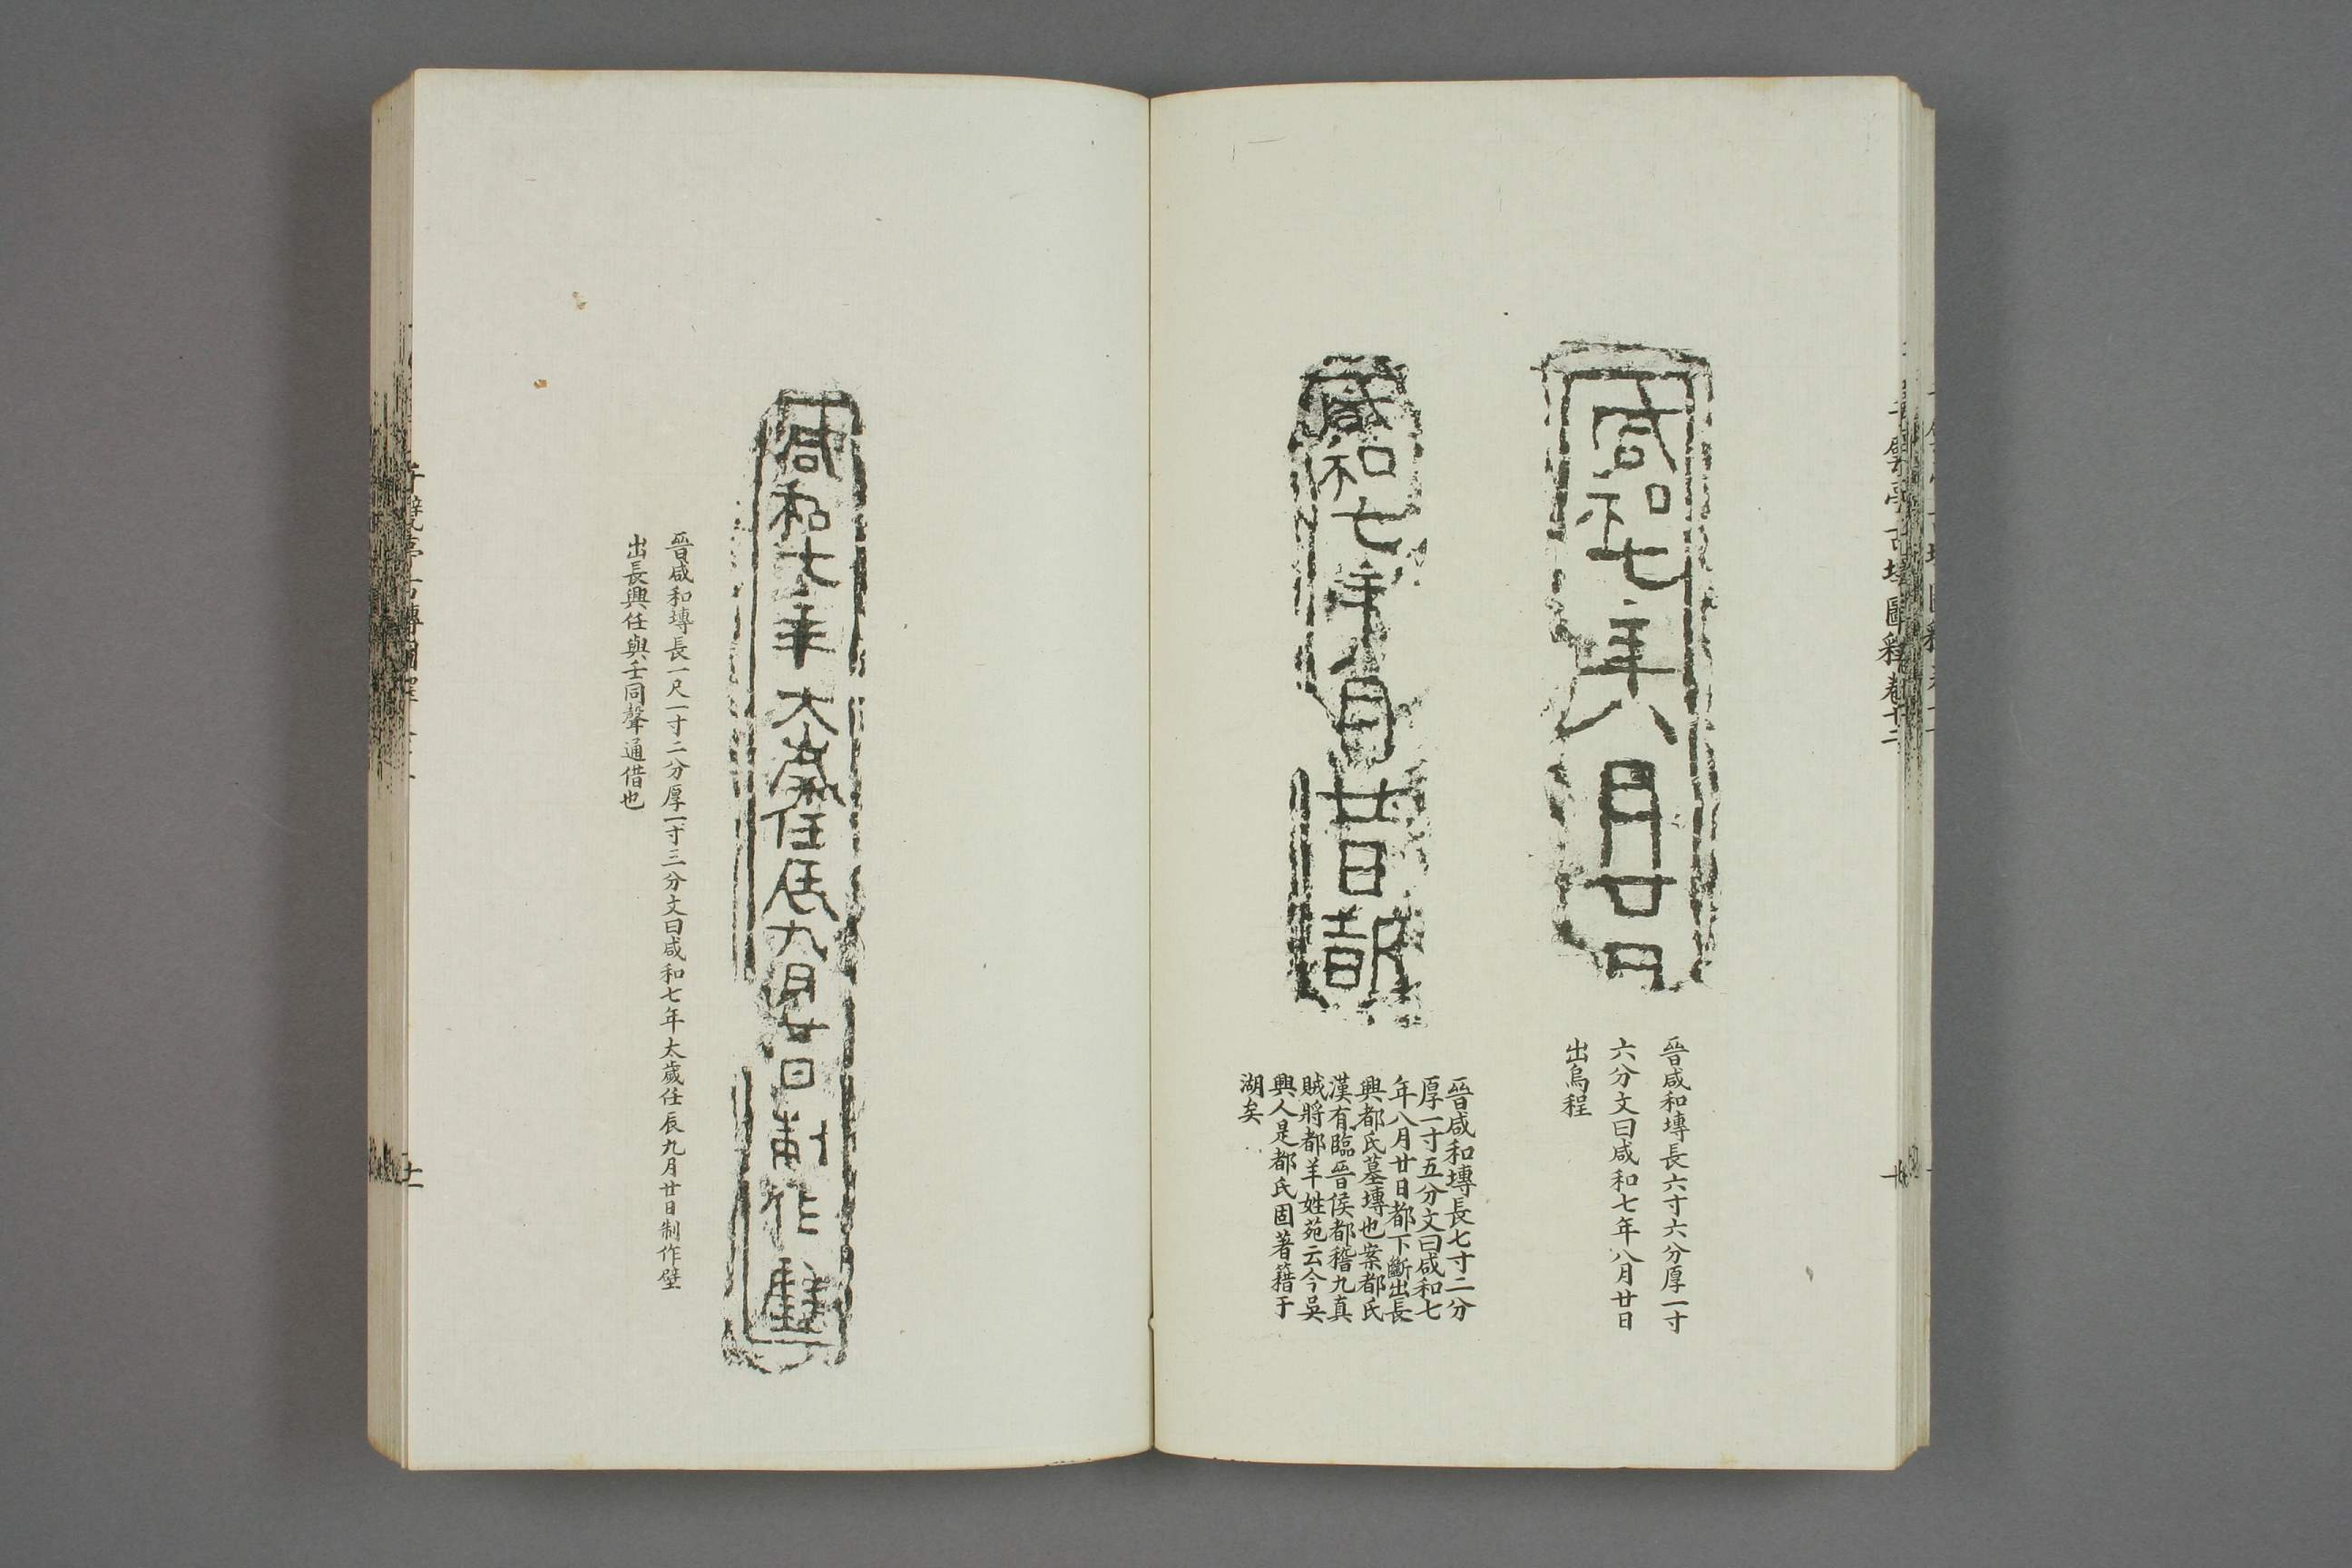 咸和七年八月廿日
晉咸和塼長六寸六分厚一寸
六分文曰咸和七年八月廿日
出烏程
咸和七年八月廿日都
晉咸和塼長七寸二分
厚一寸五分文曰咸和七
年八月廿日都下斷出長
興都氏墓塼也案都氏
漢有臨晉侯都稽九真
賊將都羊姓苑云今吳
興人是都氏固著籍于
湖矣
咸和七年太歲任辰九月廿日制作壁
晉咸和塼長一尺一寸二分厚一寸三分文曰咸和七年太歲任辰九月廿日制作壁
出長興任與壬同聲通借也